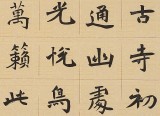 古寺初
通幽處
光悅鳥
萬籟此